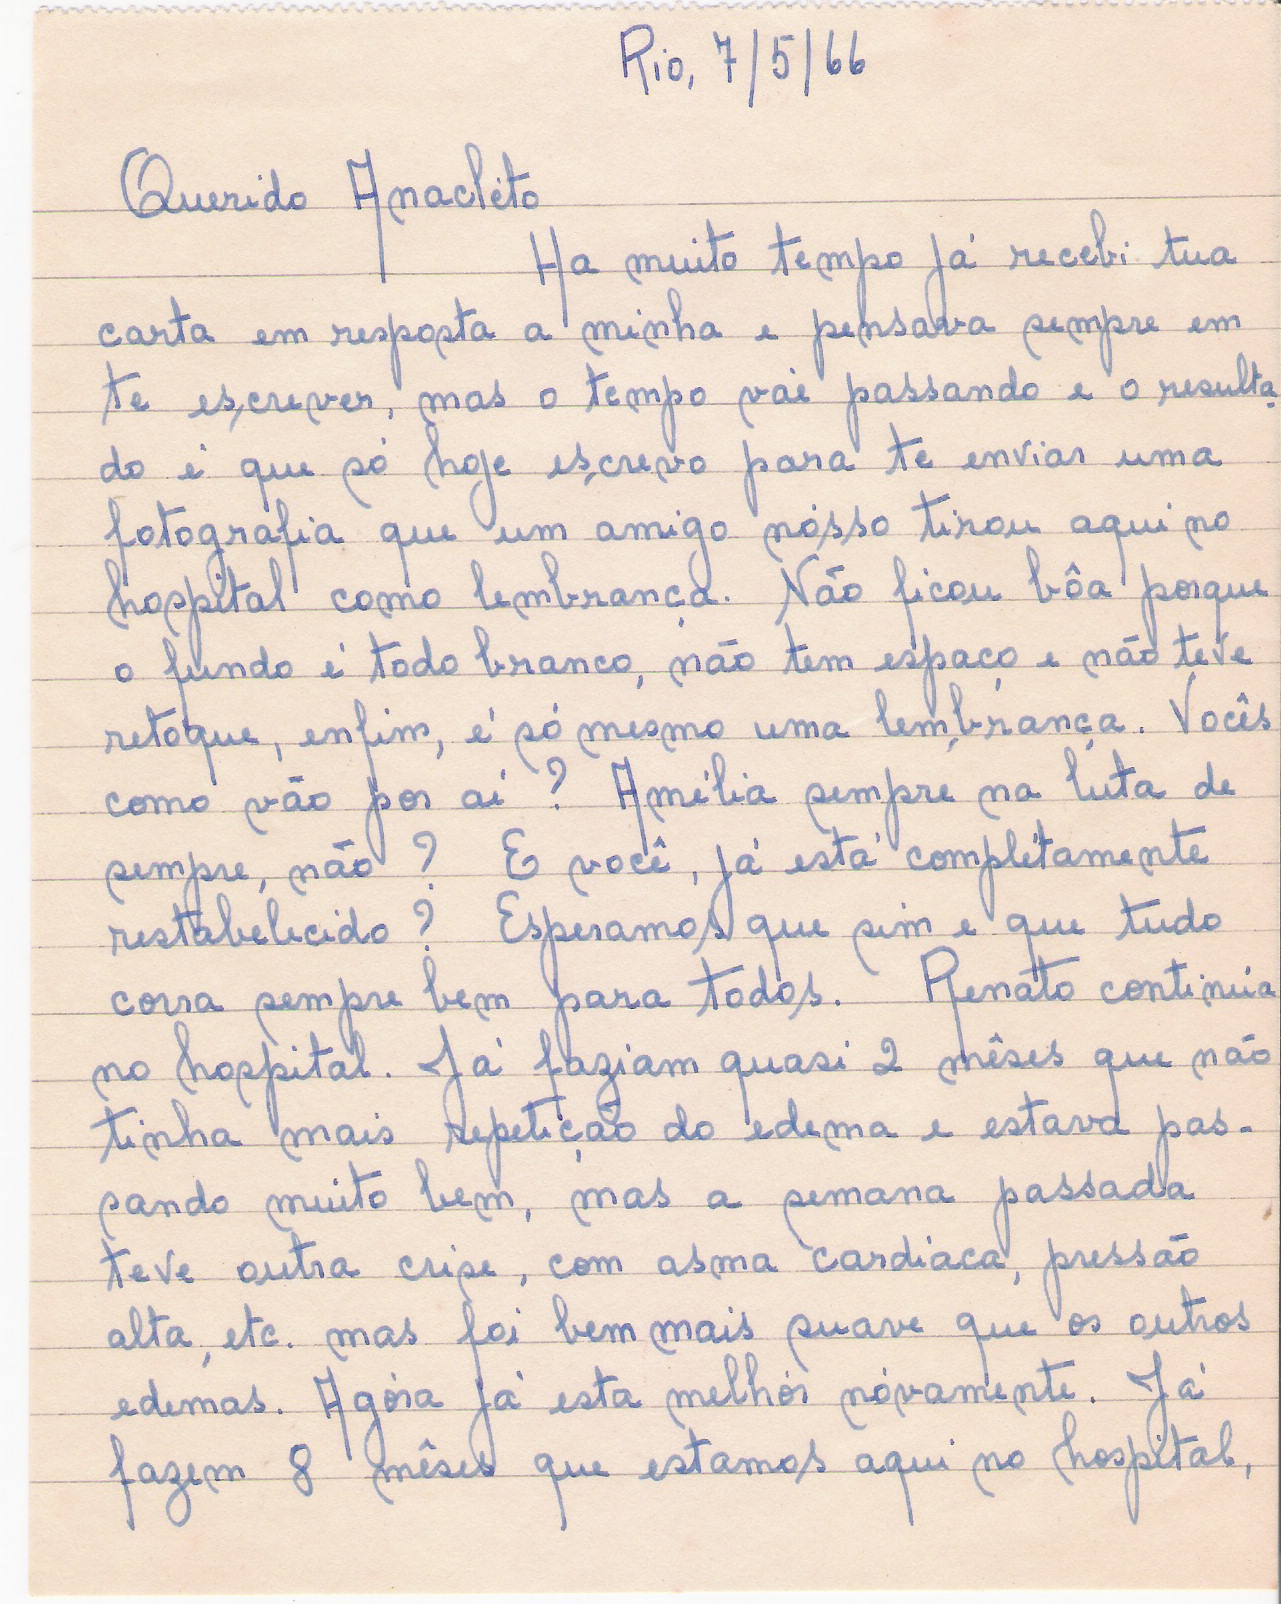 Rio, 7/5/66
Querido Anacléto
Ha muito tempo já recebi tua
carta em resposta a minha e pensava sempre em
te escrever, mas o tempo vai passando e o resulta-
do é que só hoje escrevo para te enviar uma
fotografia que um amigo nósso tirou aqui no
hospital como lembrança. Não ficou bôa porque
o fundo é todo branco, não tem espaço e não teve
retóque, enfim, é só mesmo uma lembrança. Vocês
como vão por aí ? Amélia sempre na luta de
sempre, não ? E você, já está complétamente
restabelecido ? Esperamos que sim e que tudo
corra sempre bem para todos. Renato continúa
no hospital. Já faziam quasi 2 mêses que não
tinha mais repetição do edema e estava pas-
sando muito bem, mas a semana passada
teve outra crise, com asma cardíaca, pressão
alta, etc. mas foi bem mais suave que os outros
edemas. Agóra já esta melhór nóvamente. Já
fazem 8 mêses que estamos aqui no hospital,